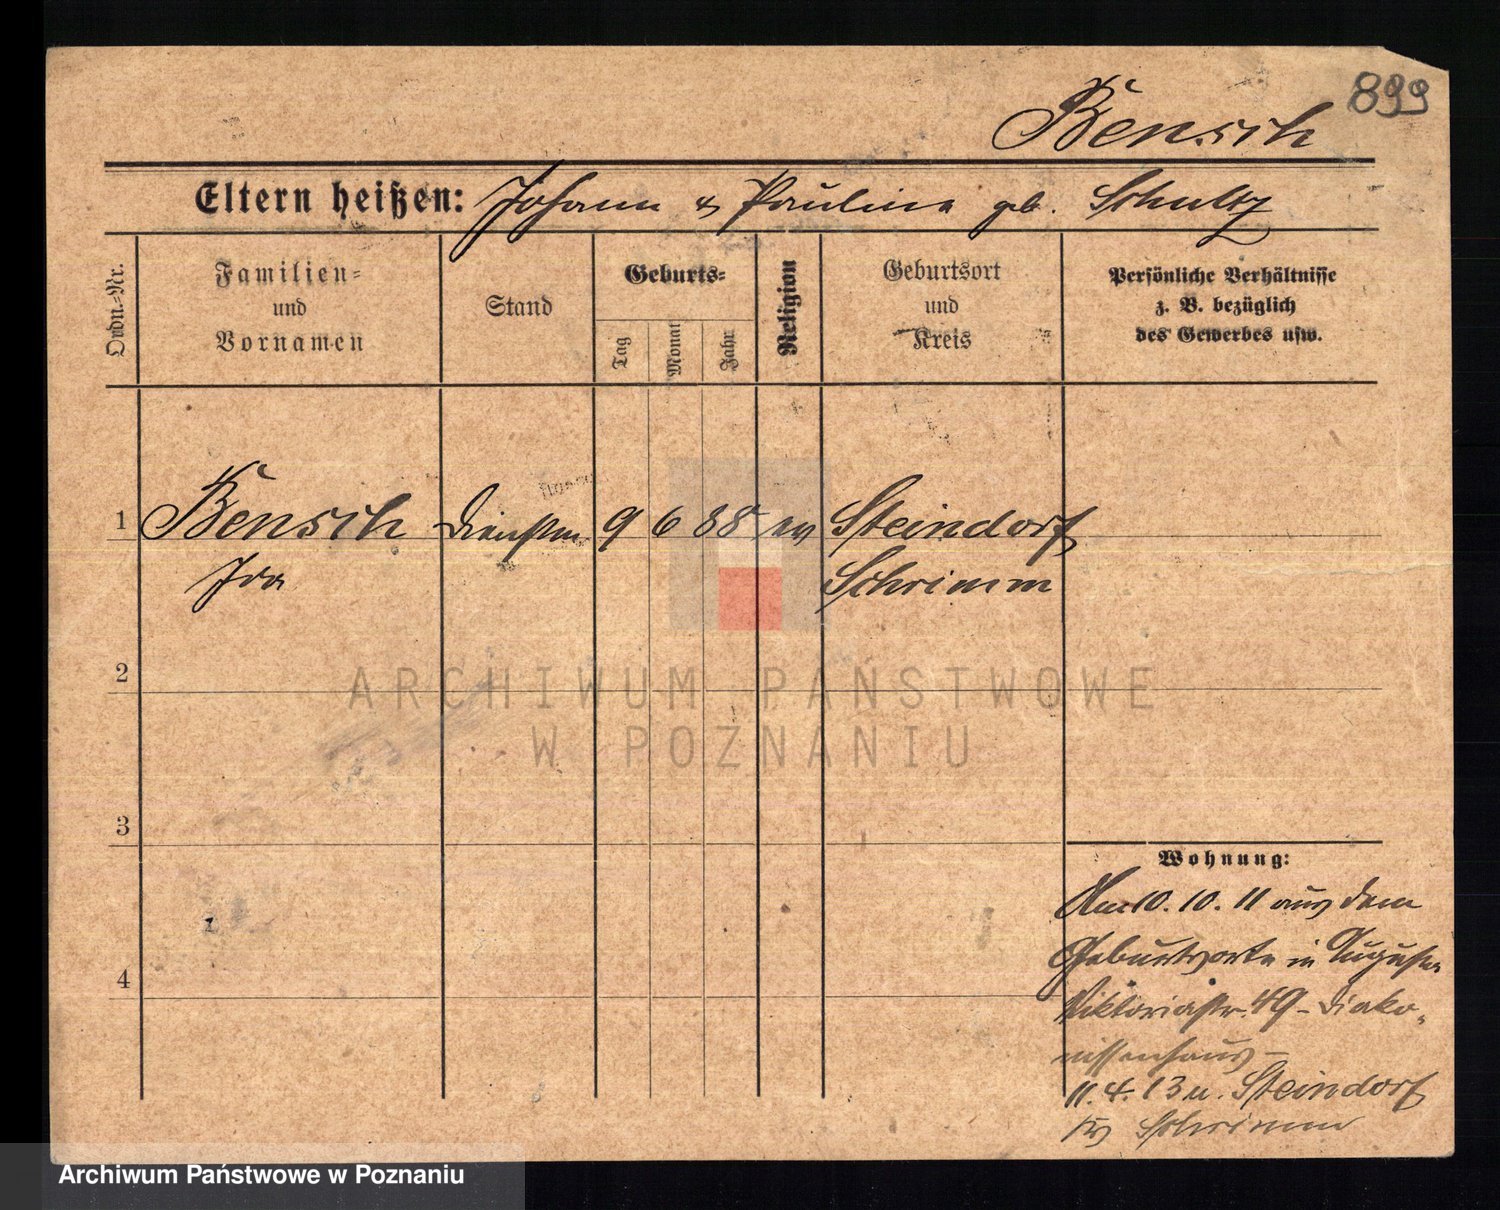 899
Bensch
Eltern heißen: Johann & Pauline geb. Schultz
Ordn.-Nr.
Familien-
und
Vornamen
Stand
Geburts-
Tag
Monat
Jahr
Religion
Geburtsort
und
Kreis
Persönliche Verhältnisse
z. B. bezüglich
des Gewerbes usw.
1 Bensch Dienstm. 9 6 88 ev Steindorf
Ida Schrimm
2
ARCHIWUM PAŃSTWOWE
W POZNANIU
3
Wohnung:
Am 10. 10. 11 aus dem
Geburtsorte in Auguste
4
Viktoriastr. 49 - Diako-
nissenhaus -
11. 4. 13 n. Steindorf
Kr Schrimm
Archiwum Państwowe w Poznaniu